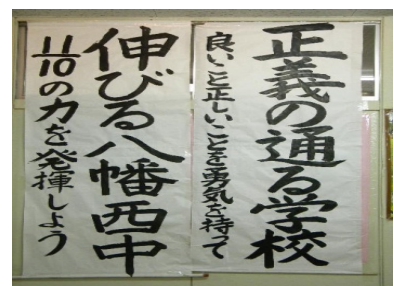 正義の通る学校
良いこと正しいことを勇気を持って
伸びる八幡西中
11/10の力を発揮しよう